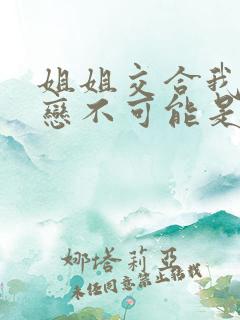 姐姐交合我
戀不可能是
娜塔莉亞
未經同意禁止轉載